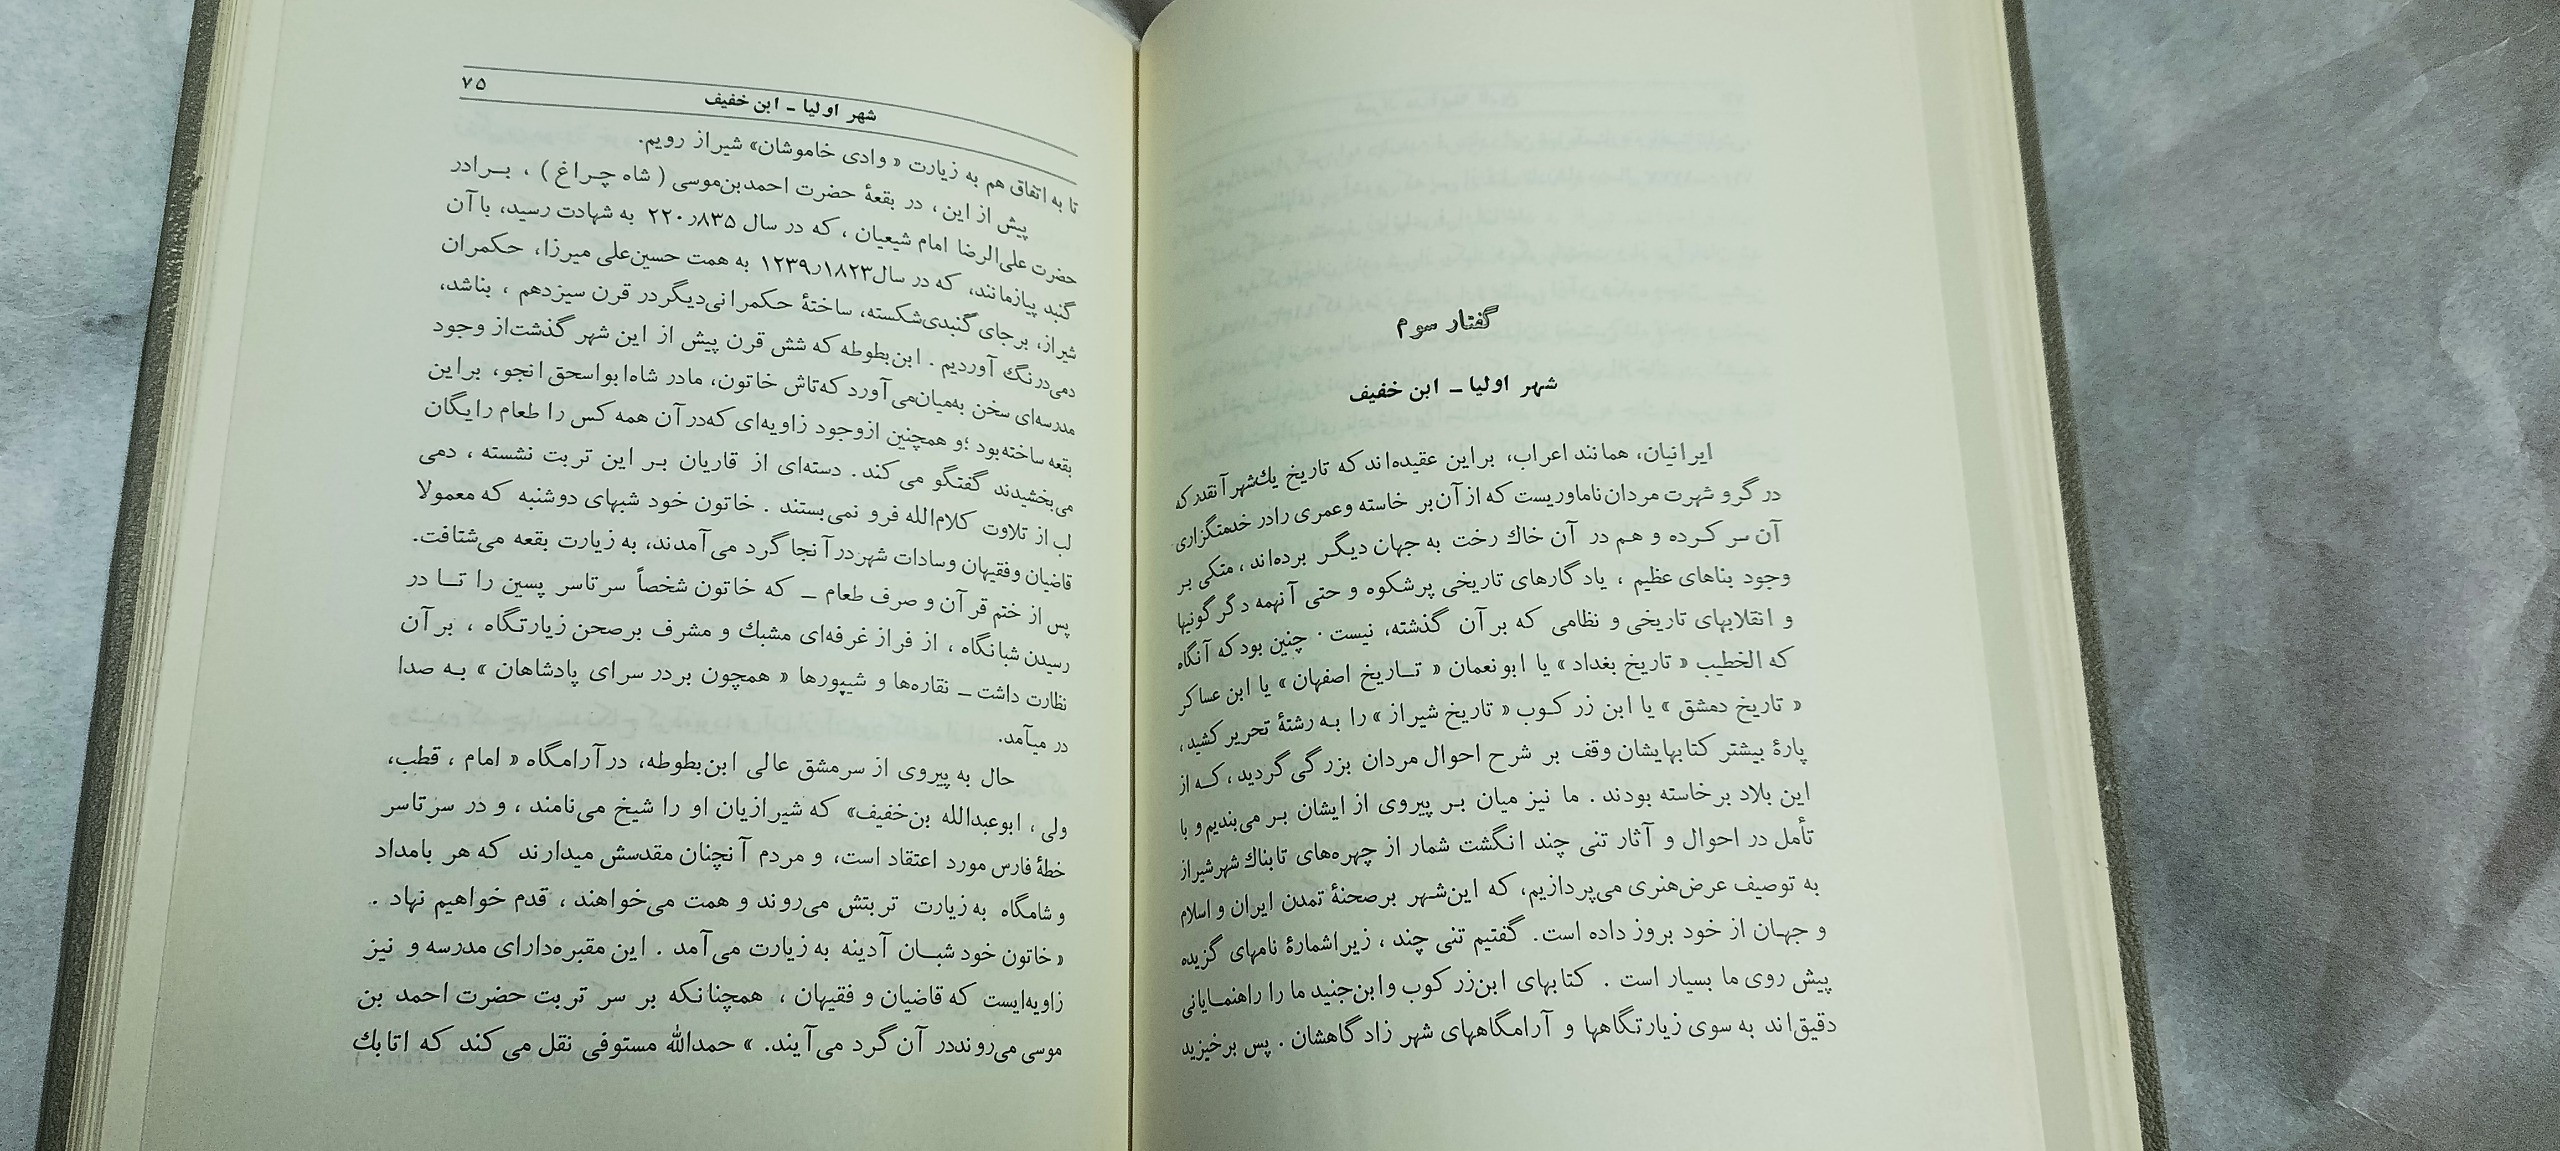 گفتار سوم
شهر اولیا ـ ابن خفیف
ایرانیان، همانند اعراب، براین عقیده‌اند که تاریخ یك‌شهر آنقدر که
در گرو شهرت مردان ناماوریست که از آن بر خاسته و عمری را در خدمتگزاری
آن سر کرده و هم در آن خاك رخت به جهان دیگر برده‌اند ، متکی بر
وجود بناهای عظیم ، یادگارهای تاریخی پرشکوه و حتی آنهمه دگرگونیها
و انقلابهای تاریخی و نظامی که بر آن گذشته، نیست . چنین بود که آنگاه
که الخطیب « تاریخ بغداد » یا ابونعمان « تاریخ اصفهان » یا ابن عساکر
« تاریخ دمشق » یا ابن زرکوب « تاریخ شیراز » را به رشتهٔ تحریر کشید،
پارهٔ بیشتر کتابهایشان وقف بر شرح احوال مردان بزرگی گردید ، که از
این بلاد برخاسته بودند . ما نیز میان بر پیروی از ایشان بر می‌بندیم و با
تأمل در احوال و آثار تنی چند انگشت شمار از چهره‌های تابناك شهر شیراز
به توصیف عرض‌هنری می‌پردازیم، که این‌شهر برصحنهٔ تمدن ایران و اسلام
و جهان از خود بروز داده است. گفتیم تنی چند ، زیرا شمارهٔ نامهای گزیده
پیش روی ما بسیار است . کتابهای ابن‌زرکوب و ابن‌جنید ما را راهنمایانی
دقیق‌اند به سوی زیارتگاهها و آرامگاههای شهر زادگاهشان . پس برخیزید
شهر اولیا ـ ابن خفیف ۷۵
تا به اتفاق هم به زیارت « وادی خاموشان» شیراز رویم.
پیش از این ، در بقعهٔ حضرت احمدبن‌موسی ( شاه چراغ ) ، برادر
حضرت علی‌الرضا امام شیعیان ، که در سال ۲۲۰٫۸۳۵ به شهادت رسید، با آن
گنبد پیازمانند، که در سال ۱۲۳۹٫۱۸۲۳ به همت حسین‌علی میرزا، حکمران
شیراز، برجای گنبدی‌شکسته، ساختهٔ حکمرانی‌دیگر در قرن سیزدهم ، بناشد،
دمی‌درنگ آوردیم . ابن‌بطوطه که شش قرن پیش از این شهر گذشت‌از وجود
مدرسه‌ای سخن به‌میان‌می‌آورد که‌تاش خاتون، مادر شاه‌ابواسحق انجو، براین
بقعه ساخته‌بود ؛و همچنین ازوجود زاویه‌ای که‌در آن همه کس را طعام رایگان
می‌بخشیدند گفتگو می‌کند . دسته‌ای از قاریان بر این تربت نشسته ، دمی
لب از تلاوت کلام‌الله فرو نمی‌بستند . خاتون خود شبهای دوشنبه که معمولا
قاضیان وفقیهان وسادات شهردر آنجا گرد می‌آمدند، به زیارت بقعه می‌شتافت.
پس از ختم قرآن و صرف طعام ـ که خاتون شخصاً سرتاسر پسین را تا در
رسیدن شبانگاه ، از فراز غرفه‌ای مشبك و مشرف برصحن زیارتگاه ، بر آن
نظارت داشت ـ نقاره‌ها و شیپورها « همچون بردر سرای پادشاهان » به صدا
در میآمد.
حال به پیروی از سرمشق عالی ابن‌بطوطه، در آرامگاه « امام ، قطب،
ولی ، ابوعبدالله بن‌خفیف» که شیرازیان او را شیخ می‌نامند ، و در سرتاسر
خطهٔ فارس مورد اعتقاد است، و مردم آنچنان مقدسش میدارند که هر بامداد
و شامگاه به زیارت تربتش می‌روند و همت می‌خواهند ، قدم خواهیم نهاد .
« خاتون خود شبان آدینه به زیارت می‌آمد . این مقبره‌دارای مدرسه و نیز
زاویه‌ایست که قاضیان و فقیهان ، همچنانکه بر سر تربت حضرت احمد بن
موسی می‌رونددر آن گرد می‌آیند. » حمدالله مستوفی نقل می‌کند که اتابك